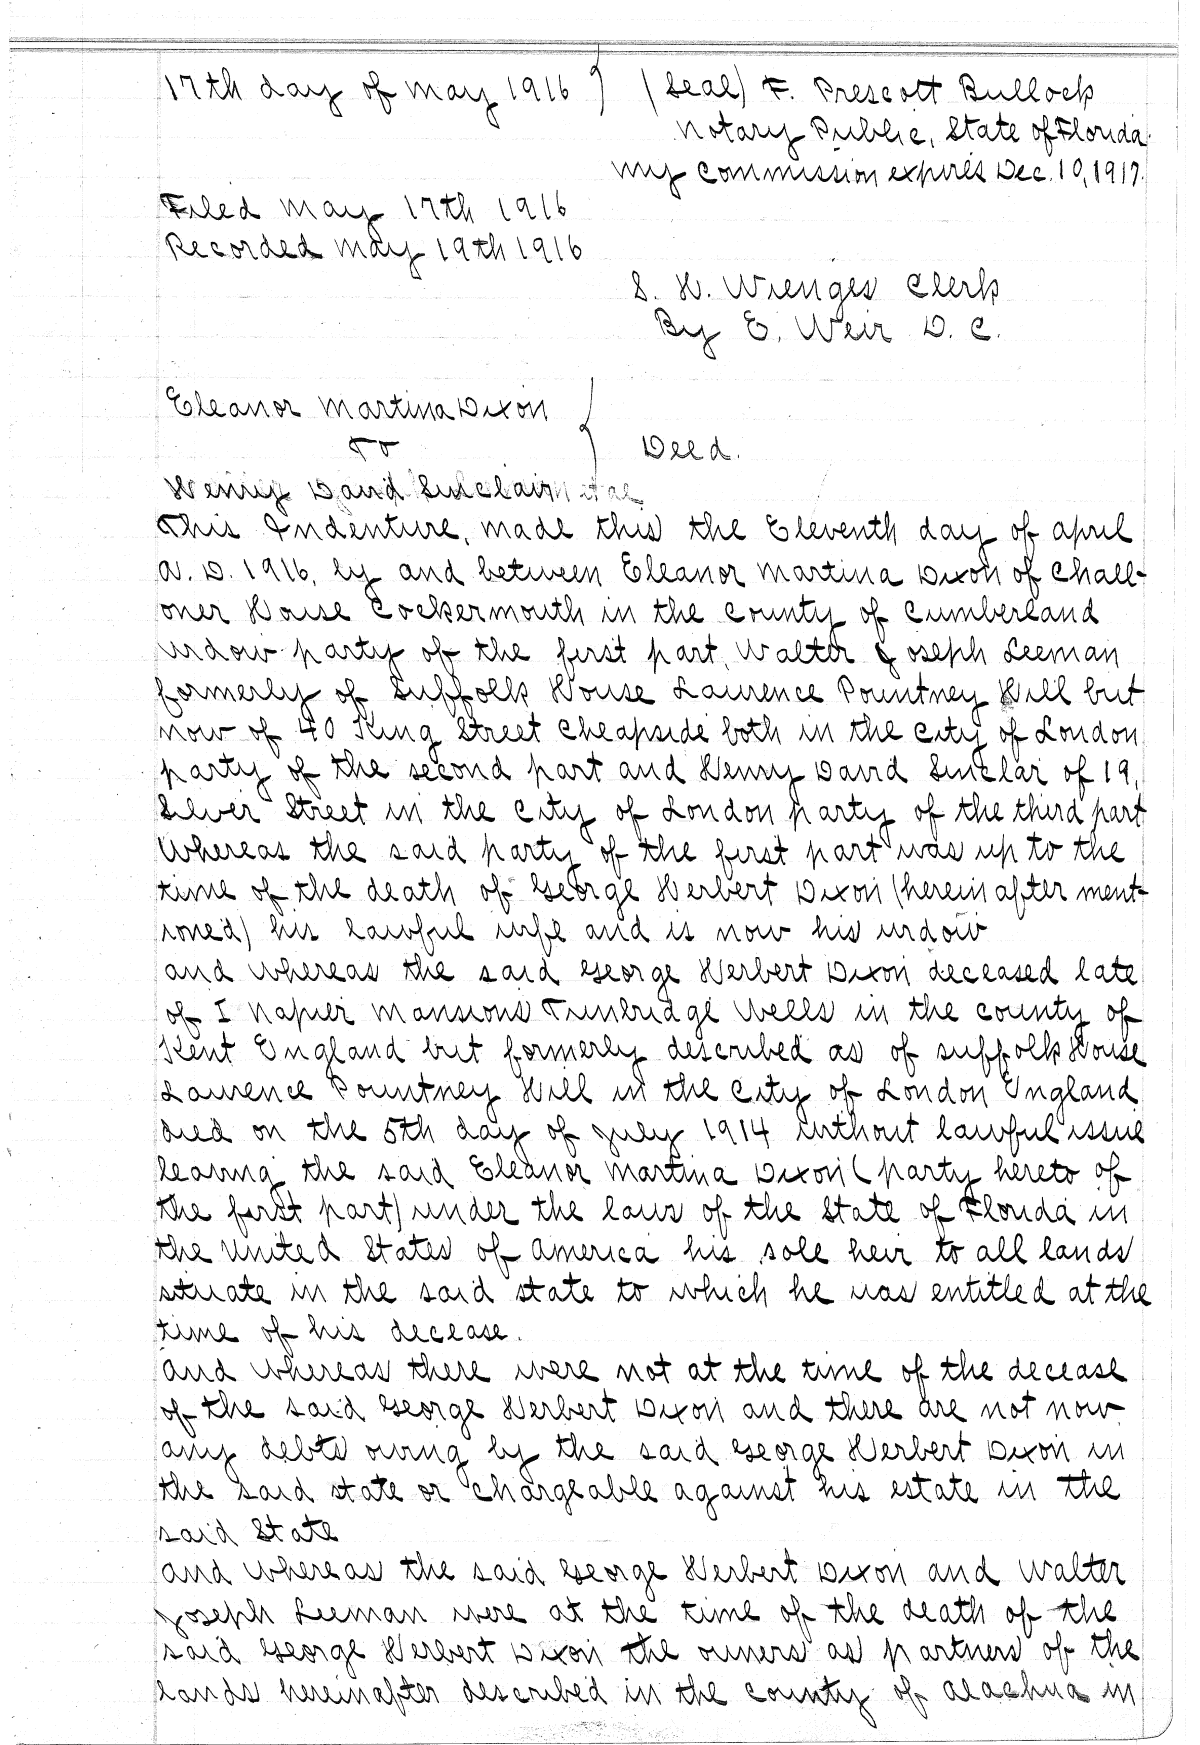 17th day of May 1916 } (Seal) F. Prescott Bullock
Notary Public, State of Florida.
My commission expires Dec. 10, 1917.
Filed May 17th 1916
Recorded May 19th 1916
S. H. Wienges Clerk
By E. Weir D. C.
Eleanor Martina Dixon
To } Deed.
Henry David Sinclair et al
This Indenture, made this the Eleventh day of April
A. D. 1916, by and between Eleanor Martina Dixon of Chall-
oner House Cockermouth in the County of Cumberland
widow party of the first part, Walter Joseph Leeman
formerly of Suffolk House Laurence Pountney Hill but
now of 40 King Street Cheapside both in the City of London
party of the second part and Henry David Sinclar of 19,
Silver Street in the City of London party of the third part
Whereas the said party of the first part was up to the
time of the death of George Herbert Dixon (hereinafter ment-
ioned) his lawful wife and is now his widow
and whereas the said George Herbert Dixon deceased late
of I Napier Mansions Tunbridge Wells in the county of
Kent England but formerly described as of Suffolk House
Laurence Pountney Hill in the City of London England
died on the 5th day of July 1914 without lawful issue
leaving the said Eleanor Martina Dixon (party hereto of
the first part) under the laws of the State of Florida in
the United States of America his sole heir to all lands
situate in the said state to which he was entitled at the
time of his decease.
And whereas there were not at the time of the decease
of the said George Herbert Dixon and there are not now
any debts owing by the said George Herbert Dixon in
the said state or chargeable against his estate in the
said State
and whereas the said George Herbert Dixon and Walter
Joseph Leeman were at the time of the death of the
said George Herbert Dixon the owners as partners of the
lands hereinafter described in the county of Alachua in